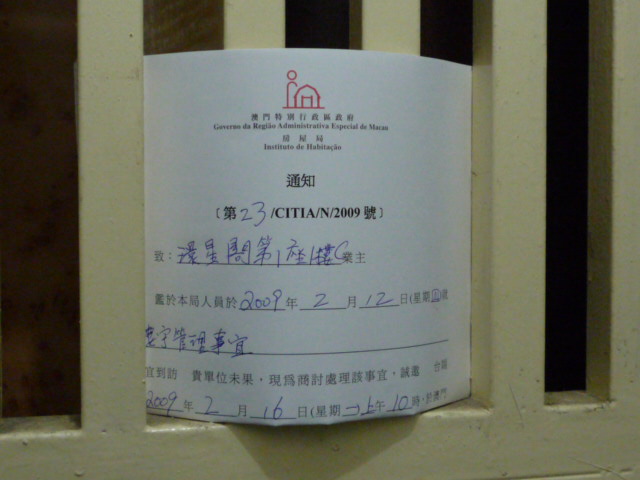 澳門特別行政區政府
Governo da Região Administrativa Especial de Macau
房屋局
Instituto de Habitação
通知
〔第23/CITIA/N/2009 號〕
致：環星閣第1座1樓C業主
鑑於本局人員於2009年2月12日(星期四)就
樓宇管理事宜
宜到訪 貴單位未果，現為商討處理該事宜，誠邀 台端
2009年2月16日(星期一)上午10時，於澳門